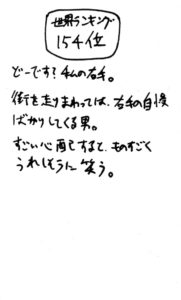 世界ランキング
154位
どーです？私の右手。
街を走りまわっては、右手の自慢
ばかりしてくる男。
すごい心配すると、ものすごく
うれしそうに笑う。